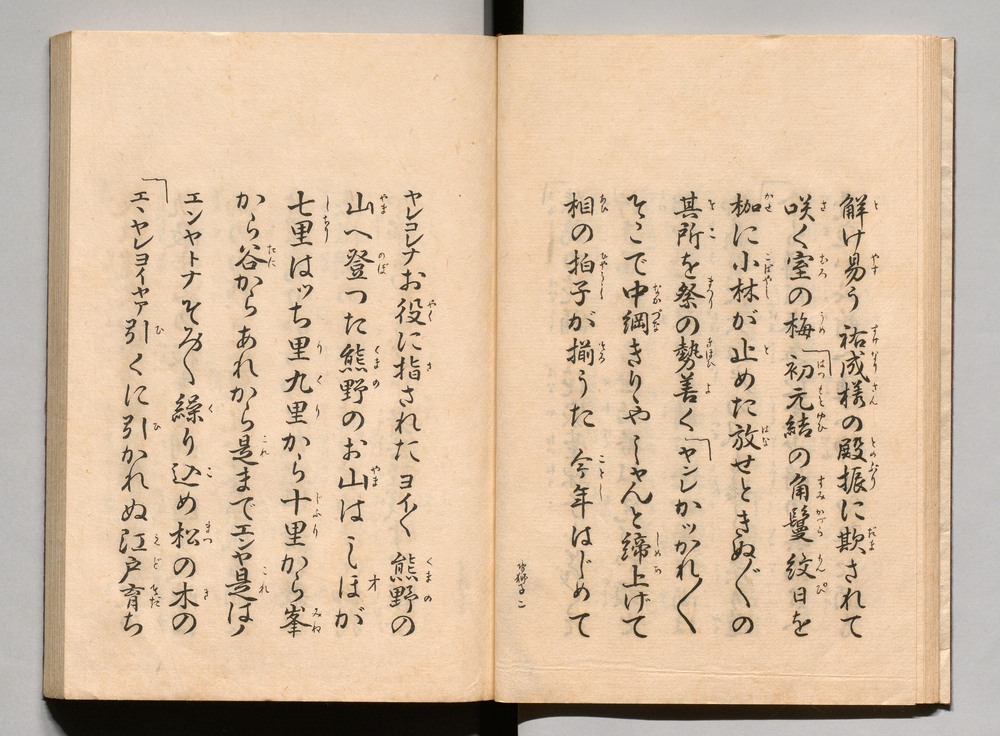 解け易う 祐成様の殿振に欺されて
咲く室の梅「初元結の角鬘 紋日を
枷に小林が止めた放せときぬ〴〵の
其所を祭の勢善く「ヤンレかッかれ〳〵
そこで中綱きりゝやしやんと締上げて
相の拍子が揃うた 今年はじめて
ヤレコレナお役に指されたヨイ〳〵 熊野の
山へ登つた熊野のお山はしほが
七里はッち里九里から十里から峯
から谷からあれから是までエンヤ是はノ
エンヤトナそろ〳〵繰り込め松の木の
「エヽヤレヨイヤァ引くに引かれぬ江戸育ち